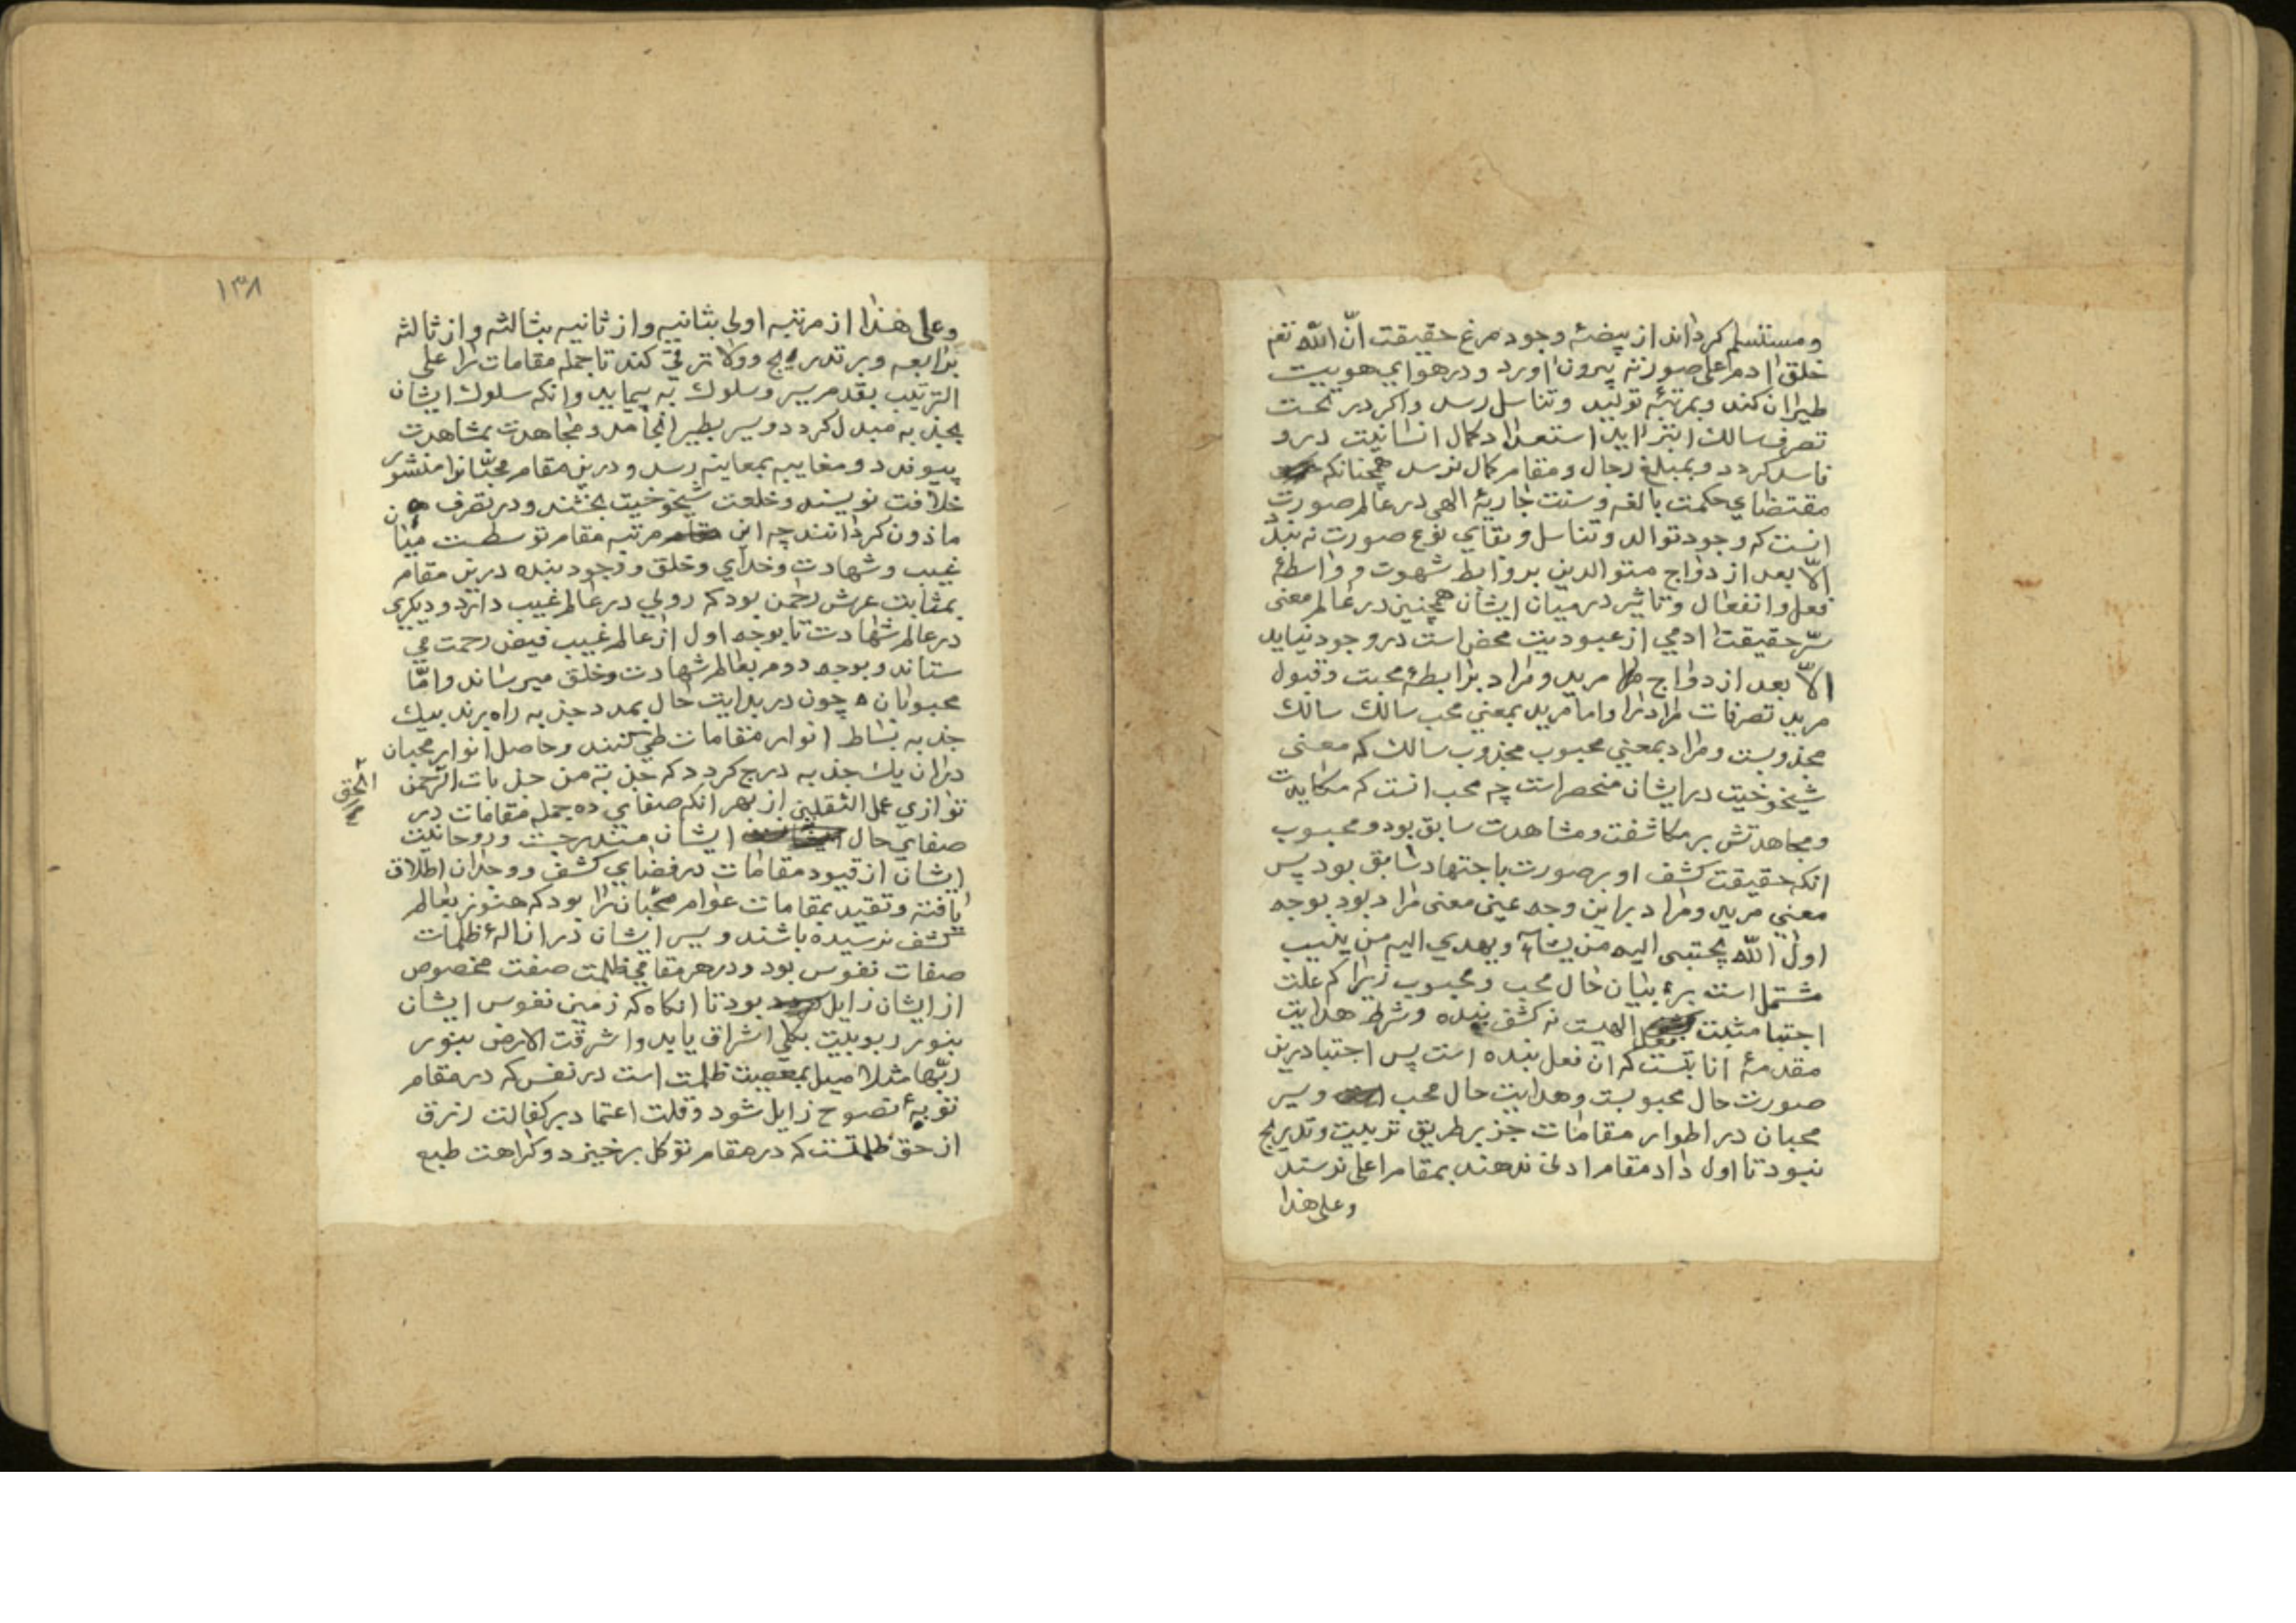 ومستسلم کرداند از بیضهٔ وجود مرغ حقیقت انّ الله تعم
خلق ادم علی صورته بیرون اورد و در هوای هویت
طیران کند وبمرتبهٔ تولید وتناسل رسد واکر در تحت
تصرف سالک ابتر اید استعداد کمال انسانیت درو
فاسد کردد وبمبلغ رجال ومقام کمال نرسد همچنانکه
مقتضای حکمت بالغه وسنت جاریهٔ الهی در عالم صورت
انست که وجود توالد وتناسل وبقای نوع صورت نه بندد
الّا بعد از دواج متوالدین بروابط شهوت و واسطهٔ
فعل وانفعال وتاثیر درمیان ایشان همچنین در عالم معنی
سرّ حقیقت ادمی از عبودیت محض است در وجود نیاید
الّا بعد از دواج مرید ومراد برابطهٔ محبت وقبول
مرید تصرفات مراد را واما مرید بمعنی محب سالک سالک
مجذوبست ومراد بمعنی محبوب مجذوب سالک که معنی
شیخوخیت در ایشان منحصر است چه محب انست که مکابدت
ومجاهدتش بر مکاشفت ومشاهدت سابق بود ومحبوب
انکه حقیقت کشف او بر صورت باجتهاد سابق بود پس
معنی مرید ومراد براین وجه عین معنی مراد بود بوجه
اول الله یجتبی الیه من یشآء ویهدی الیه من ینیب
مشتمل است بر بیان حال محب ومحبوب زیراکه علت
اجتبا مثبت فعل الهیست نه کشف بنده وشرط هدایت
مقدمهٔ انابتست که ان فعل بنده است پس اجتبا درین
صورت حال محبوبست وهدایت حال محب وسیر
محبان در اطوار مقامات جز بر طریق تربیت وتدریج
نبود تا اول داد مقام ادنی ندهند بمقام اعلی نرسند
وعلی هذا
١٣٨
وعلی هذا از مرتبه اولی بثانیه واز ثانیه بثالثه واز ثالثه
برابعه وبر تدریج وولا ترقی کند تا جمله مقامات را علی
الترتیب بقدم سیر وسلوک به پیماید وانکه سلوک ایشان
بجذبه مبدل کردد وسیر بطیر انجامد ومجاهدت بمشاهدت
پیوندد ومغایبه بمعاینه رسد ودرین مقام محبّانرا منشور
خلافت نویسند وخلعت شیخوخیت بخشند ودر تصرف
ماذون کردانند چه این مرتبه مقام توسطست میان
غیب وشهادت وخدای وخلق ووجود بنده درین مقام
بمثابت عرش رحمن بود که رویی در عالم غیب دارد ودیکری
در عالم شهادت تا بوجه اول از عالم غیب فیض رحمت می
ستاند وبوجه دوم بعالم شهادت وخلق میرساند وامّا
محبوبان چون در بدایت حال بمدد جذبه راه برند بیک
جذبه بساط انوار مقامات طی کنند وحاصل انوار محبان
دران یک جذبه درج کردد که جذبة من جذبات الرحمن
الحق
توازی عمل الثقلین از بهر انکه صفای ده جمله مقامات در
صفای حال ایشان مندرجست وروحانیت
ایشان از قیود مقامات در فضای کشف ووجدان اطلاق
یافته وتقید بمقامات عوام محبّان را بود که هنوز بعالم
کشف نرسیده باشند وسیر ایشان در ازالهٔ ظلمات
صفات نفوس بود ودر هر مقامی ظلمت صفت مخصوص
از ایشان زایل بود تا انکاه که زمین نفوس ایشان
بنور ربوبیت بکلی اشراق یابد واشرقت الارض بنور
ربّها مثلا میل بمعصیت ظلمت است در نفس که در مقام
توبهٔ نصوح زایل شود وقلت اعتماد بر کفالت رزق
از حق ظلمتست که در مقام توکل برخیزد وکراهت طبع